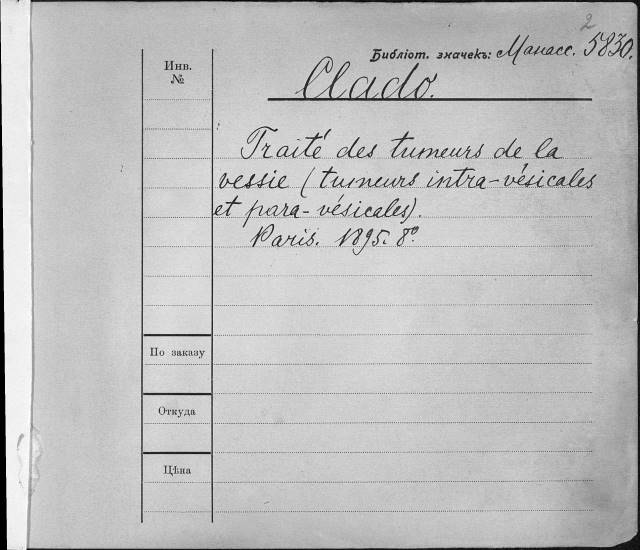 2
Библіот. значекъ: Манасс. 5830.
Инв.
№
Clado.
Traité des tumeurs de la
vessie (tumeurs intra-vésicales
et para-vésicales).
Paris. 1895. 8º.
По заказу
Откуда
Цѣна